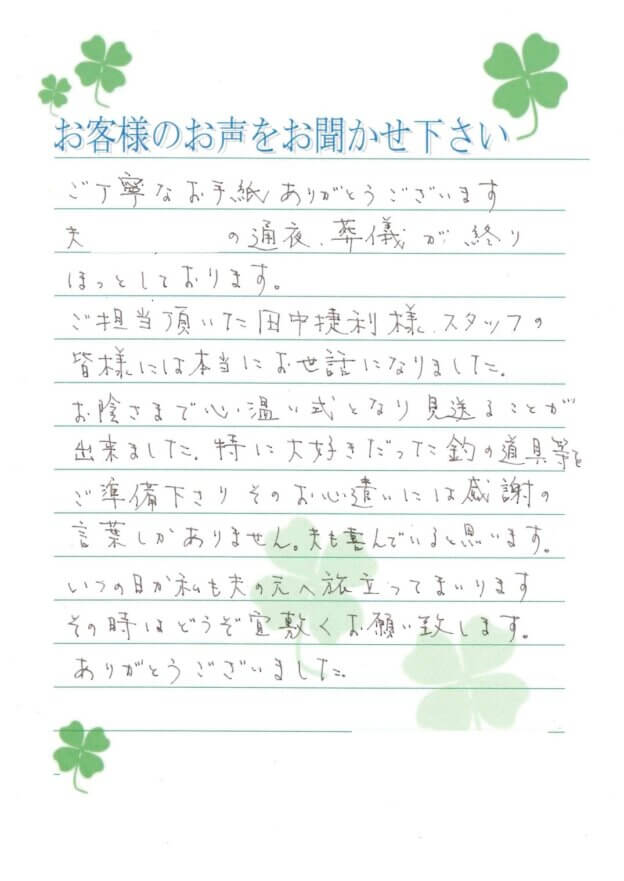 お客様のお声をお聞かせ下さい
ご丁寧なお手紙ありがとうございます
夫 の通夜、葬儀が終り
ほっとしております。
ご担当頂いた田中捷利様、スタッフの
皆様には本当にお世話になりました。
お陰さまで心温い式となり見送ることが
出来ました。特に大好きだった釣の道具等を
ご準備下さりそのお心遣いには感謝の
言葉しかありません。夫も喜んでいると思います。
いつの日か私も夫の元へ旅立ってまいります
その時はどうぞ宜敷くお願い致します。
ありがとうございました。